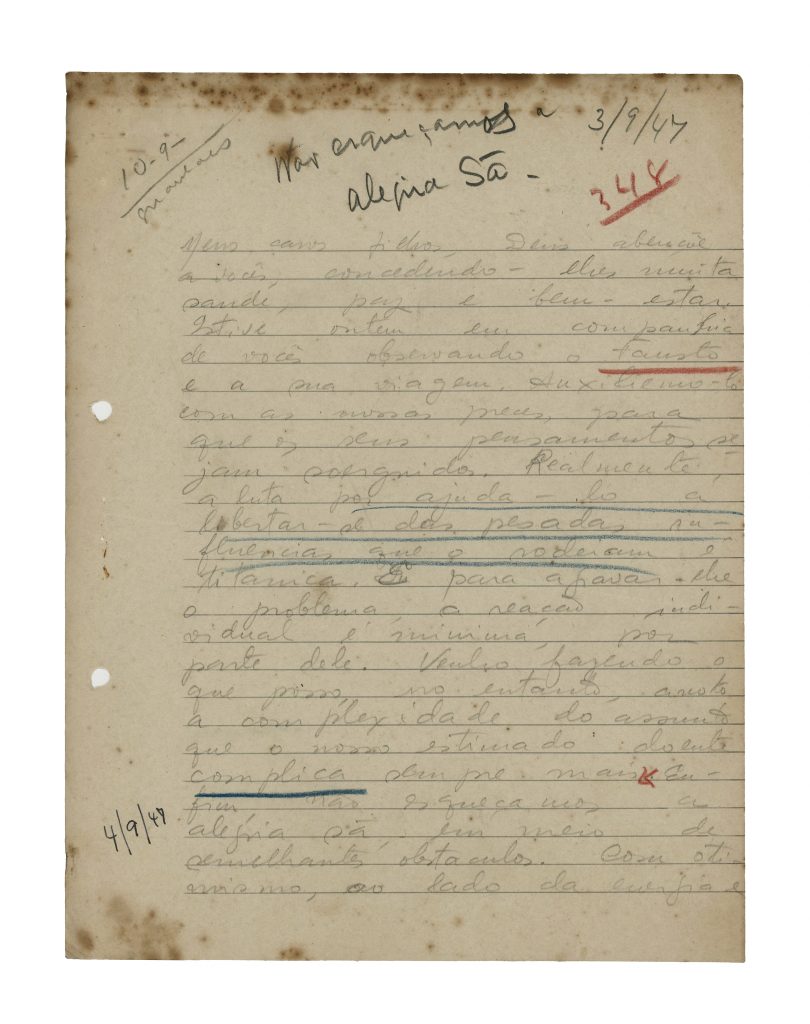 10-9-
Não esqueçamos a
3/9/47
alegria Sã -
348
Meus caros filhos, Deus abençôe
a vocês, concedendo-lhes muita
saúde, paz e bem-estar.
Estive ontem em companhia
de vocês observando o Fausto
e a sua viagem. Auxiliemo-lo
com as nossas preces, para
que os seus pensamentos se-
jam soerguidos. Realmente,
a luta por ajuda-lo a
libertar-se das pesadas in-
fluencias que o rodeiam é
titanica. E para agravar-lhe
o problema, a reação indi-
vidual é minima, por
parte dele. Venho fazendo o
que posso, no entanto, anoto
a complexidade do assunto
que o nosso estimado doente
complica sempre mais. En-
fim, não esqueçamos a
alegria sã, em meio de
semelhantes obstaculos. Com oti-
mismo, ao lado da energia e
4/9/47